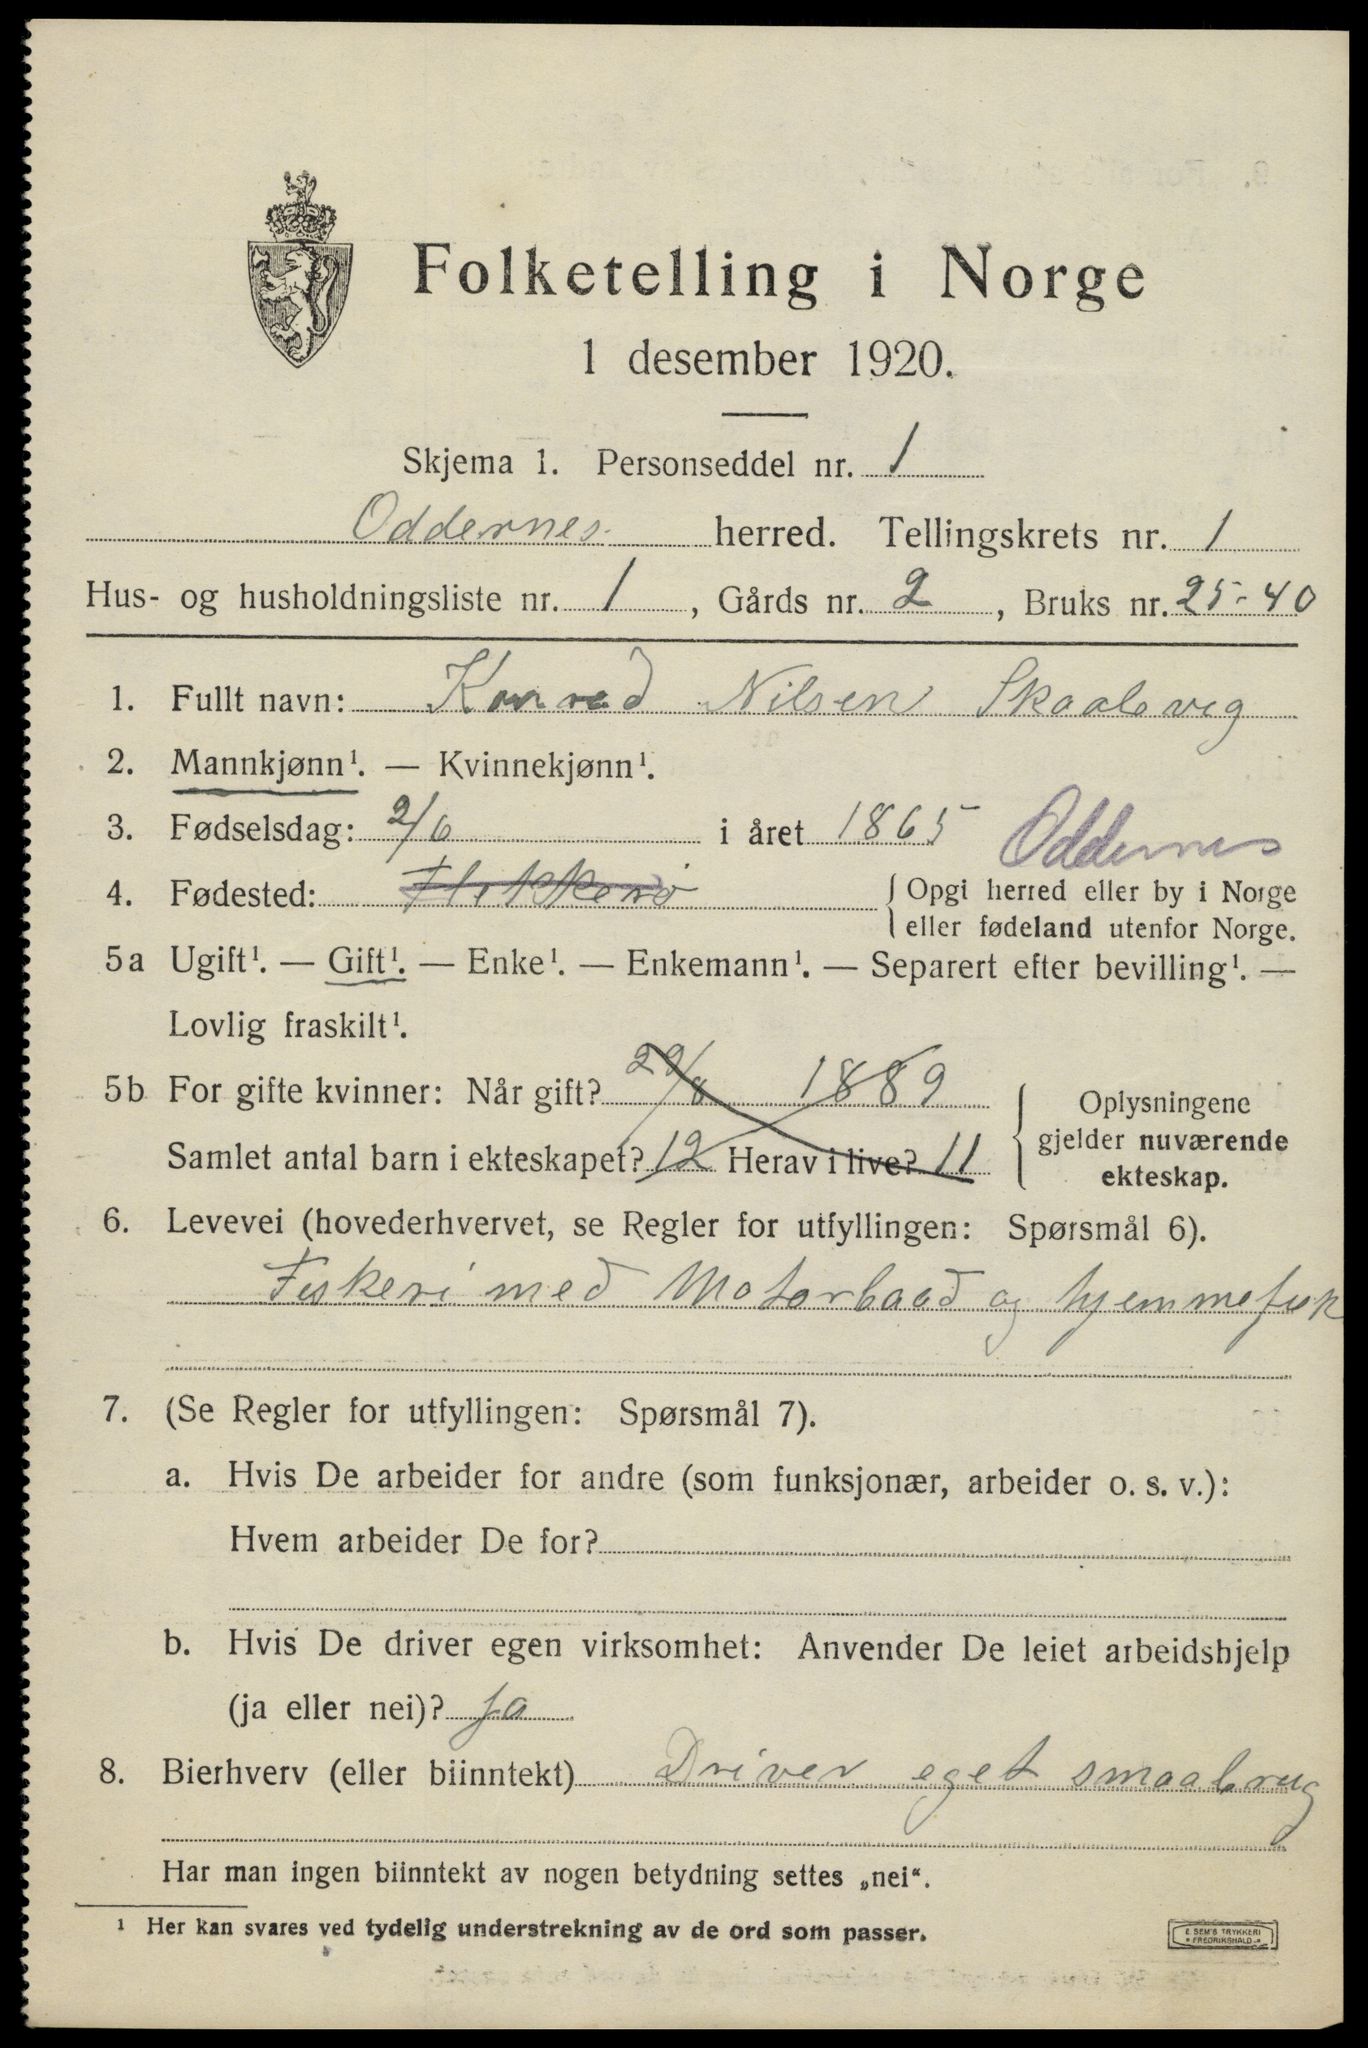 Folketelling i Norge
1 desember 1920.
Skjema 1. Personseddel nr. 1
Oddernes herred. Tellingskrets nr. 1
Hus- og husholdningsliste nr. 1, Gårds nr. 2, Bruks nr. 25-40
1. Fullt navn: Konrad Nilsen Skaalevig
2. Mannkjønn¹. — Kvinnekjønn¹.
3. Fødselsdag: 2/6 i året 1865 Oddernes
4. Fødested: Flekkerø { Opgi herred eller by i Norge
eller fødeland utenfor Norge.
5a Ugift¹. — Gift¹. — Enke¹. — Enkemann¹. — Separert efter bevilling¹. —
Lovlig fraskilt¹.
5b For gifte kvinner: Når gift? 29/8 1889
Samlet antal barn i ekteskapet? 12 Herav i live? 11
{ Oplysningene
gjelder nuværende
ekteskap.
6. Levevei (hovederhvervet, se Regler for utfyllingen: Spørsmål 6).
Fiskeri med Motorbaad og hjemmefisk
7. (Se Regler for utfyllingen: Spørsmål 7).
a. Hvis De arbeider for andre (som funksjonær, arbeider o. s. v.):
Hvem arbeider De for?
b. Hvis De driver egen virksomhet: Anvender De leiet arbeidshjelp
(ja eller nei)? ja
8. Bierhverv (eller biinntekt) Driver eget smaabrug
Har man ingen biinntekt av nogen betydning settes „nei“.
¹ Her kan svares ved tydelig understrekning av de ord som passer.
E. SEM'S TRYKKERI
FREDRIKSHALD